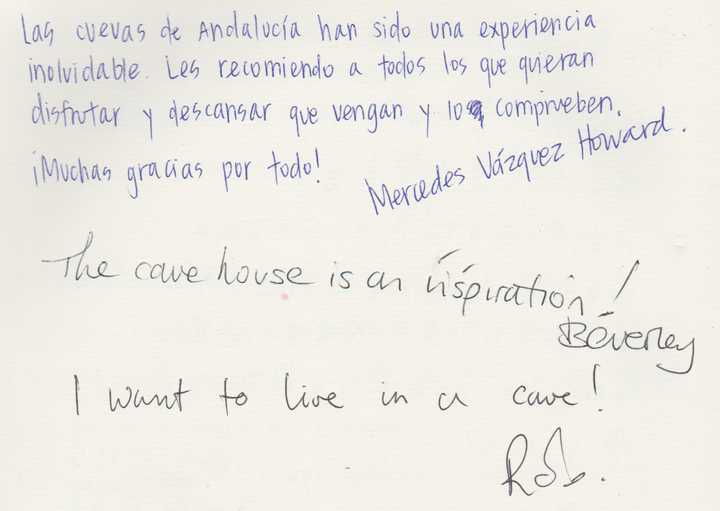 Las cuevas de Andalucía han sido una experiencia
inolvidable. Les recomiendo a todos los que quieran
disfrutar y descansar que vengan y lo comprueben.
¡Muchas gracias por todo!
Mercedes Vázquez Howard.
The cave house is an inspiration!
Beverley
I want to live in a cave!
Rob.